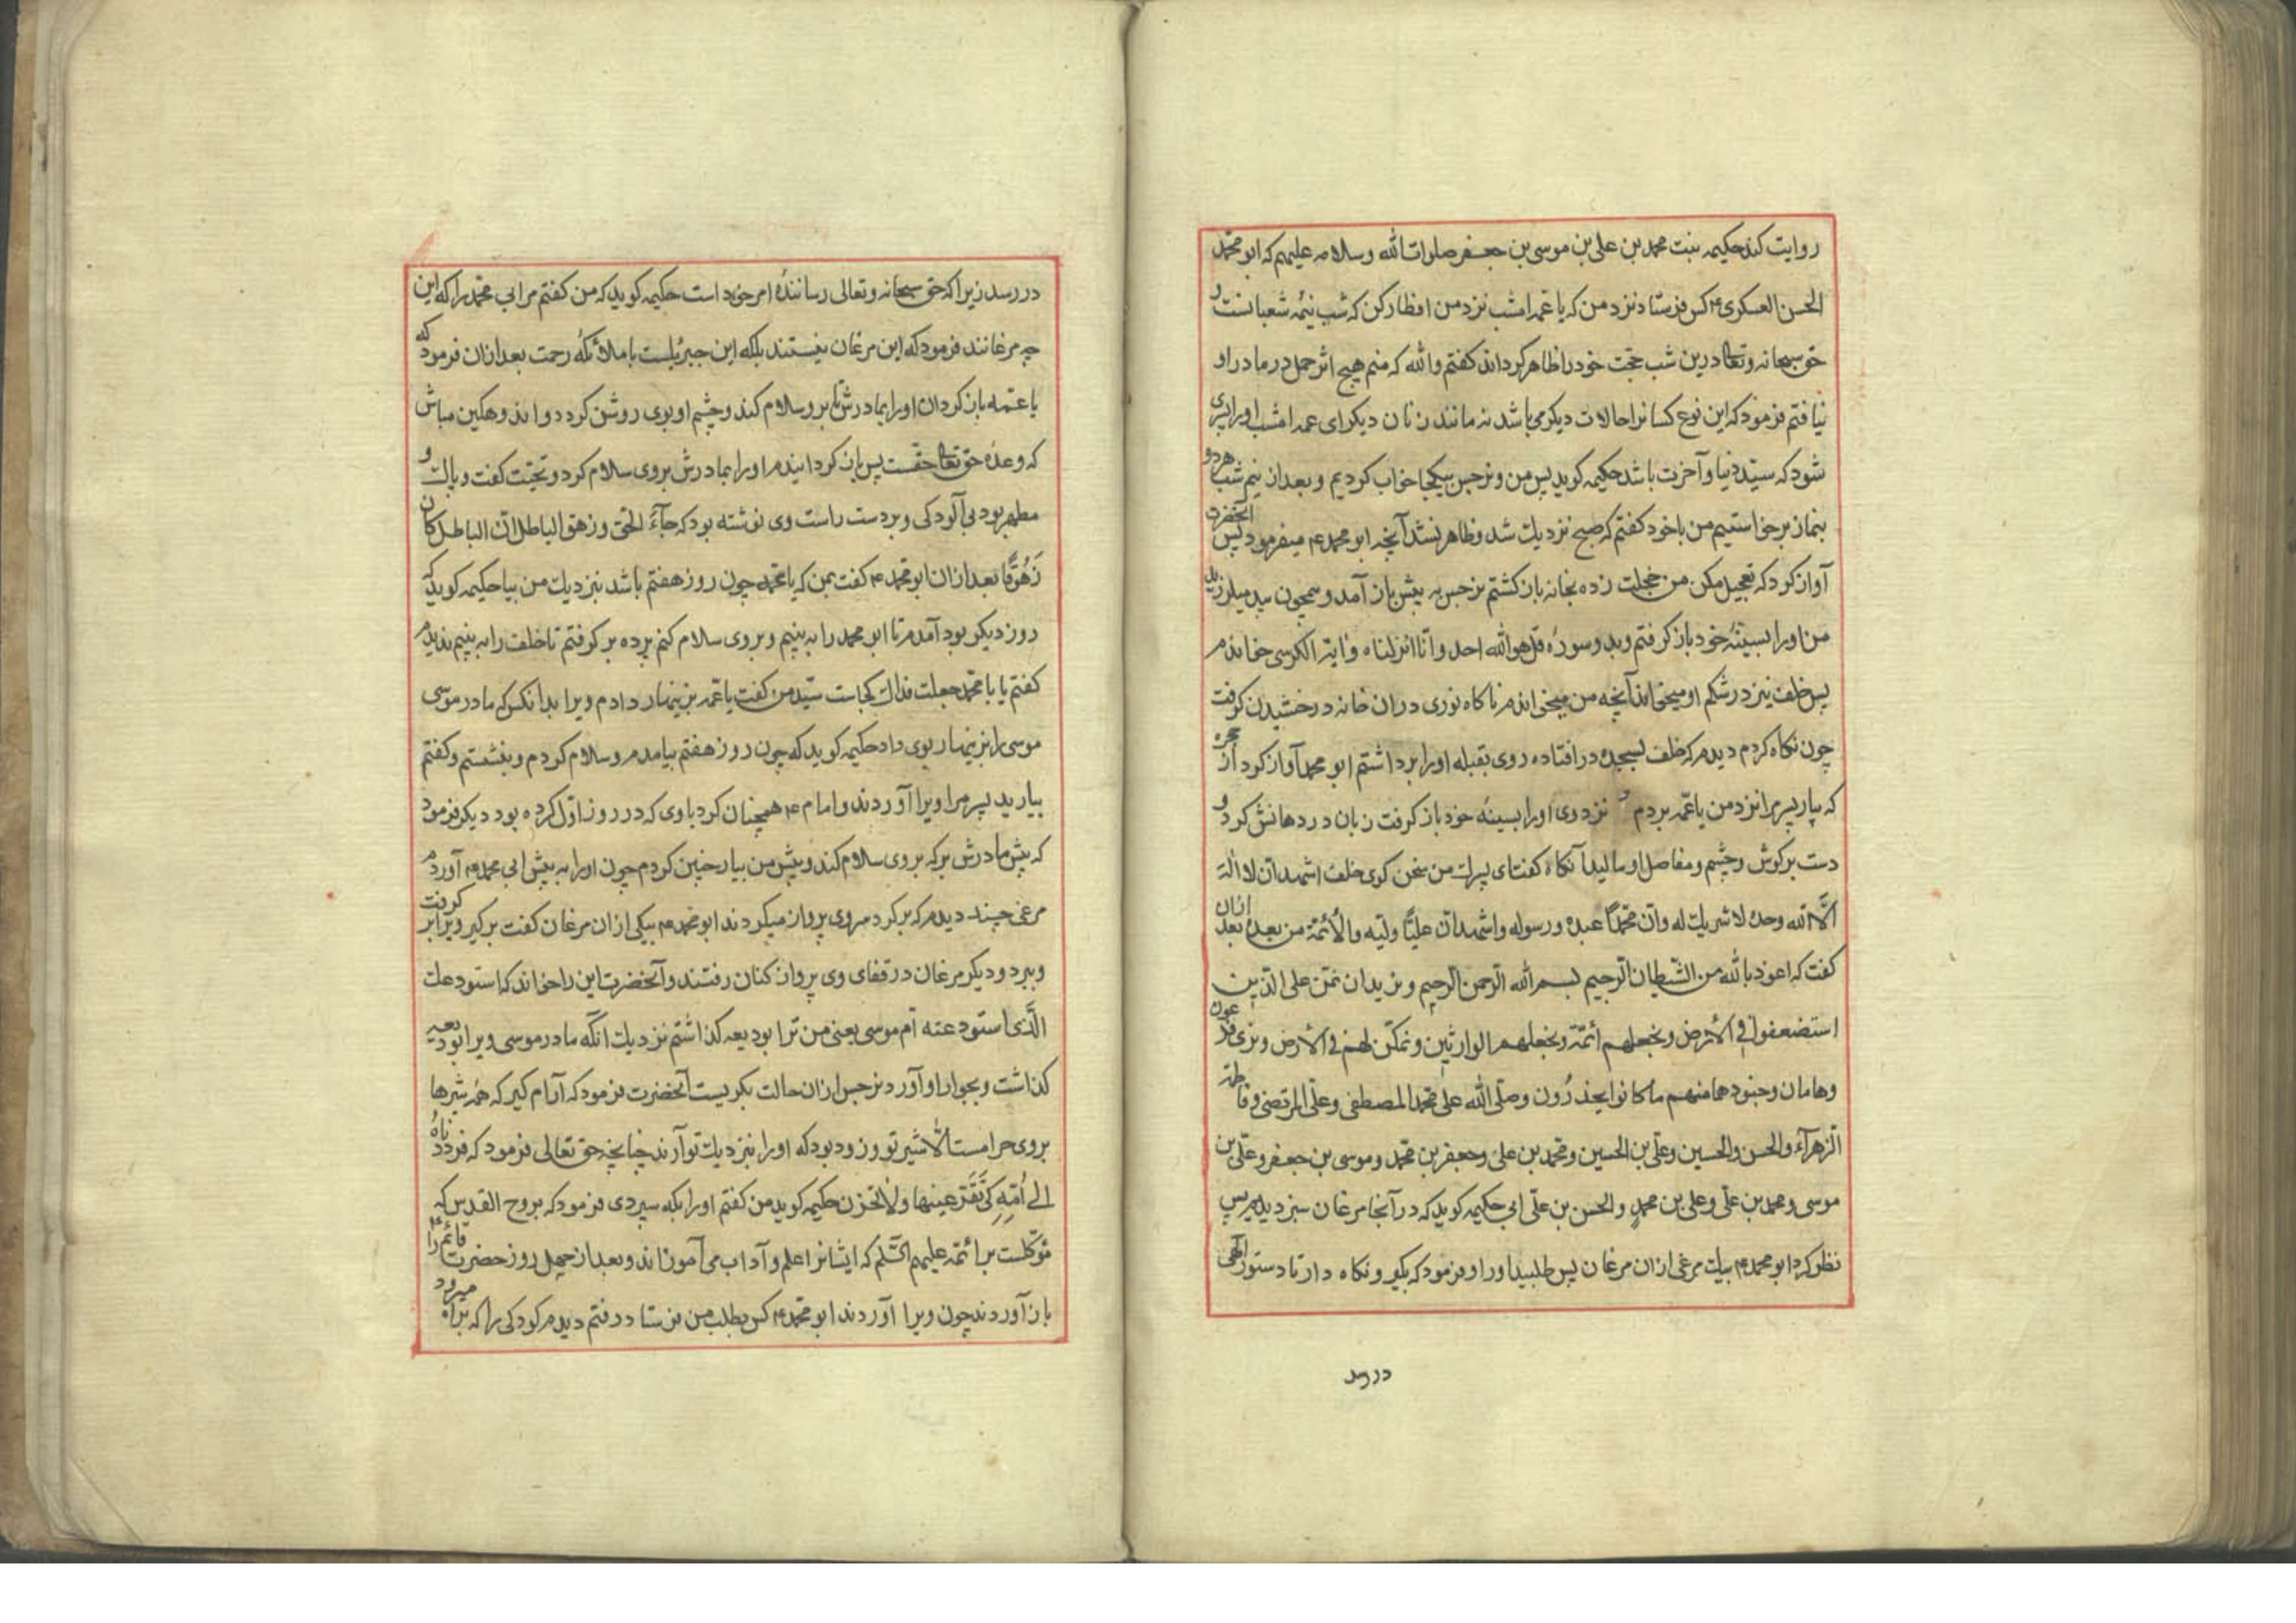 روایت کند حکیمه بنت محمد بن علی بن موسی بن جعفر صلوات الله وسلامه علیهم که ابو محمّد
الحسن العسکری ۴ کس فرستاد نزد من که یا عمّه امشب نزد من افطار کن که شب نیمه شعبانست و
حق سبحانه وتعالی درین شب حجّت خود را ظاهر کرداند کفتم والله که منم هیچ اثر حمل در مادر او
نیافتم فرمود که این نوع کسانرا حالات دیکر می باشد نه مانند زنان دیکر ای عمه امشب او را پسری
شود که سیّد دنیا و آخرت باشد حکیمه کوید پس من و نرجس بیکجا خواب کردیم و بعد از نیم شب هر دو
بنماز برخواستیم من با خود کفتم که صبح نزدیک شد و ظاهر نشد آنچه ابو محمد ۴ میفرمود پس آنحضرت
آواز کرد که تعجیل مکن من خجلت زده بخانه باز کشتم نرجس به پیش باز آمد و همچون بید میلرزید
من او را بسینهٔ خود باز کرفتم و بدو سورهٔ قل هو الله احد و انّا انزلناه وایة الکرسی خواندم
پس خلف نیز در شکم او میخواند آنچه من میخواندم ناکاه نوری دران خانه درخشیدن کرفت
چون نکاه کردم دیدم که خلف بسجده در افتاده روی بقبله او را برداشتم ابو محمد آواز کرد از حجره
که بیار پسر مرا نزد من یا عمّه بردم نزد وی او را بسینهٔ خود باز کرفت زبان در دهانش کرد و
دست بر کوش و چشم و مفاصل او مالید آنکاه کفت ای پسرک من سخن کوی خلف اشهد ان لا اله
الّا الله وحده لا شریک له وانّ محمّدًا عبده ورسوله واشهد انّ علیًّا ولیّه والأئمّة من بعده بعد ازان
کفت که اعوذ بالله من الشّیطان الرّجیم بسم الله الرّحمن الرّحیم ونرید ان نمنّ علی الّذین
استضعفوا فی الأرض ونجعلهم أئمّة ونجعلهم الوارثین ونمکّن لهم فی الأرض ونری فرعون
وهامان وجنودهما منهم ما کانوا یحذرُون وصلّی الله علی محمّد المصطفی وعلیّ المرتضی وفاطمة
الزهرآء والحسن والحسین وعلیّ بن الحسین ومحمّد بن علیّ وجعفر بن محمّد وموسی بن جعفر وعلیّ بن
موسی ومحمد بن علیّ وعلی بن محمدٍ والحسن بن علیّ ابی حکیمه کوید که در آنجا مرغان سبز دیدم پس
نظر کرد ابو محمد ۴ بیک مرغی ازان مرغان پس طلبید او را و فرمود که بگیر و نکاه دار تا دستور الهی
در رسد
در رسد زیرا که حق سبحانه وتعالی رسانندهٔ امر خود است حکیمه کوید که من کفتم مر ابی محمّد را که این
چه مرغانند فرمود که این مرغان نیستند بلکه این جبرئیلست با ملائکهٔ رحمت بعد ازان فرمود که
یا عمّه باز کردان او را بمادرش تا بر و سلام کند و چشم او بوی روشن کردد و اندوهکین مباش
که وعدهٔ حق تعالی حقست پس باز کردانیدم او را بمادرش بروی سلام کرد و تحیّت کفت و پاک و
مطهر بود بی آلودکی و بر دست راست وی نوشته بود که جآءَ الحقّ وزهق الباطل انّ الباطل کان
زَهُوقًا بعد ازان ابو محمّد ۴ کفت بمن که یا عمّه چون روز هفتم باشد نزدیک من بیا حکیمه کوید که
روز دیکر بود آمدم تا ابو محمد را به بینم و بروی سلام کنم پرده بر کرفتم تا خلف را به بینم ندیدم
کفتم یا با محمّد جعلت فداک کجاست سیّد من کفت یا عمّه بزینهار دادم ویرا بدانکس که مادر موسی
موسی را بزینهار بوی داد حکیمه کوید که چون روز هفتم بیامدم و سلام کردم و بنشستم و کفتم
بیارید پسر مرا ویرا آوردند و امام ۴ همچنان کرد باوی که در روز اوّل کرده بود دیکر فرمود
که پیش مادرش بر که بروی سلام کند و پیش من بیار چنین کردم چون او را به پیش ابی محمد ۴ آوردم
مرغی چند دیدم که بر کرد سر وی پرواز میکردند ابو محمّد ۴ بیکی ازان مرغان کفت بر کیر ویرا بر کرفت
و ببرد و دیکر مرغان در قفای وی پرواز کنان رفتند و آنحضرت این را خواند که استودعک
الّذی استودعته أم موسی یعنی من ترا بودیعه کذاشتم نزدیک آنکه مادر موسی ویرا بودیعه
کذاشت و بجوار او آورد نرجس ازان حالت بکریست آنحضرت فرمود که آرام کیر که همه شیرها
بروی حرامست الّا شیر تو و زود بود که او را نزدیک تو آرند چنانچه حق تعالی فرمود که فرددناهُ
الی اُمّه کَی تَقَرّ عینها ولا تحزن حکیمه کوید من کفتم او را بکه سپردی فرمود که بروح القدس که
مُوکّلست بر ائمّه علیهم السّلم که ایشانرا علم و آداب می آموزاند و بعد از چهل روز حضرت قائم را
باز آوردند چون ویرا آوردند ابو محمّد ۴ کس بطلب من فرستاد رفتم دیدم کودکی را که براه میرود